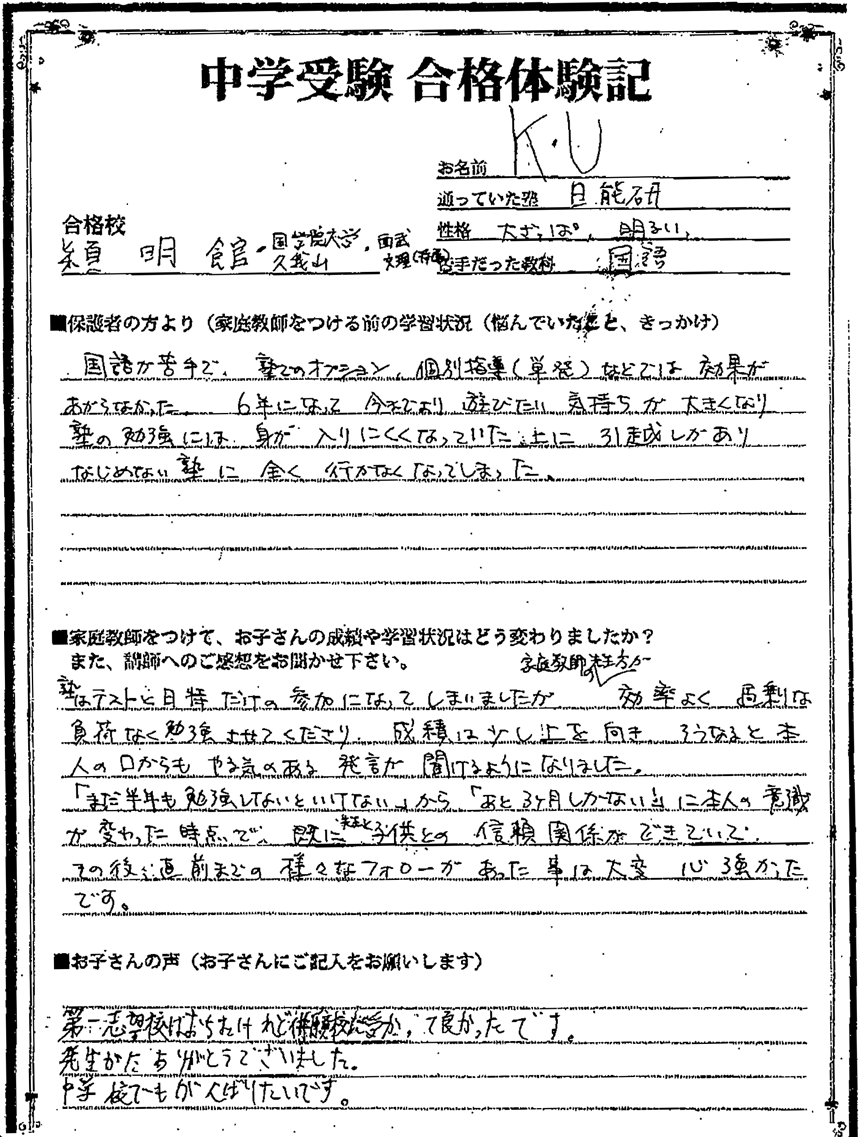 中学受験 合格体験記
お名前 K.U
通っていた塾 日能研
性格 大ざっぱ、明るい、
苦手だった教科 国語
合格校
穎明館・国学院大学久我山・西武文理(特選)
■保護者の方より（家庭教師をつける前の学習状況（悩んでいたこと、きっかけ）
国語が苦手で、塾でのオプション、個別指導(単発)などでは効果が
あがらなかった。 6年になって今までより遊びたい気持ちが大きくなり
塾の勉強には身が入りにくくなっていた上に引越しがあり
なじめない塾に全く行かなくなってしまった。
■家庭教師をつけて、お子さんの成績や学習状況はどう変わりましたか？
また、講師へのご感想をお聞かせ下さい。
塾はテストと日特だけの参加になってしまいましたが 家庭教師の先生方が 効率よく過剰な
負荷なく勉強させてくださり、成績は少し上を向き そうなると本
人の口からもやる気のある発言が聞けるようになりました。
「まだ半年も勉強しないといけない」から「あと3ヶ月しかない」に本人の意識
が変わった時点で、既に先生と子供との信頼関係ができていて、
その後、直前までの様々なフォローがあった事は大変心強かった
です。
■お子さんの声（お子さんにご記入をお願いします）
第一志望校はおちたけれど併願校が受かって良かったです。
先生がたありがとうございました。
中学校でもがんばりたいです。